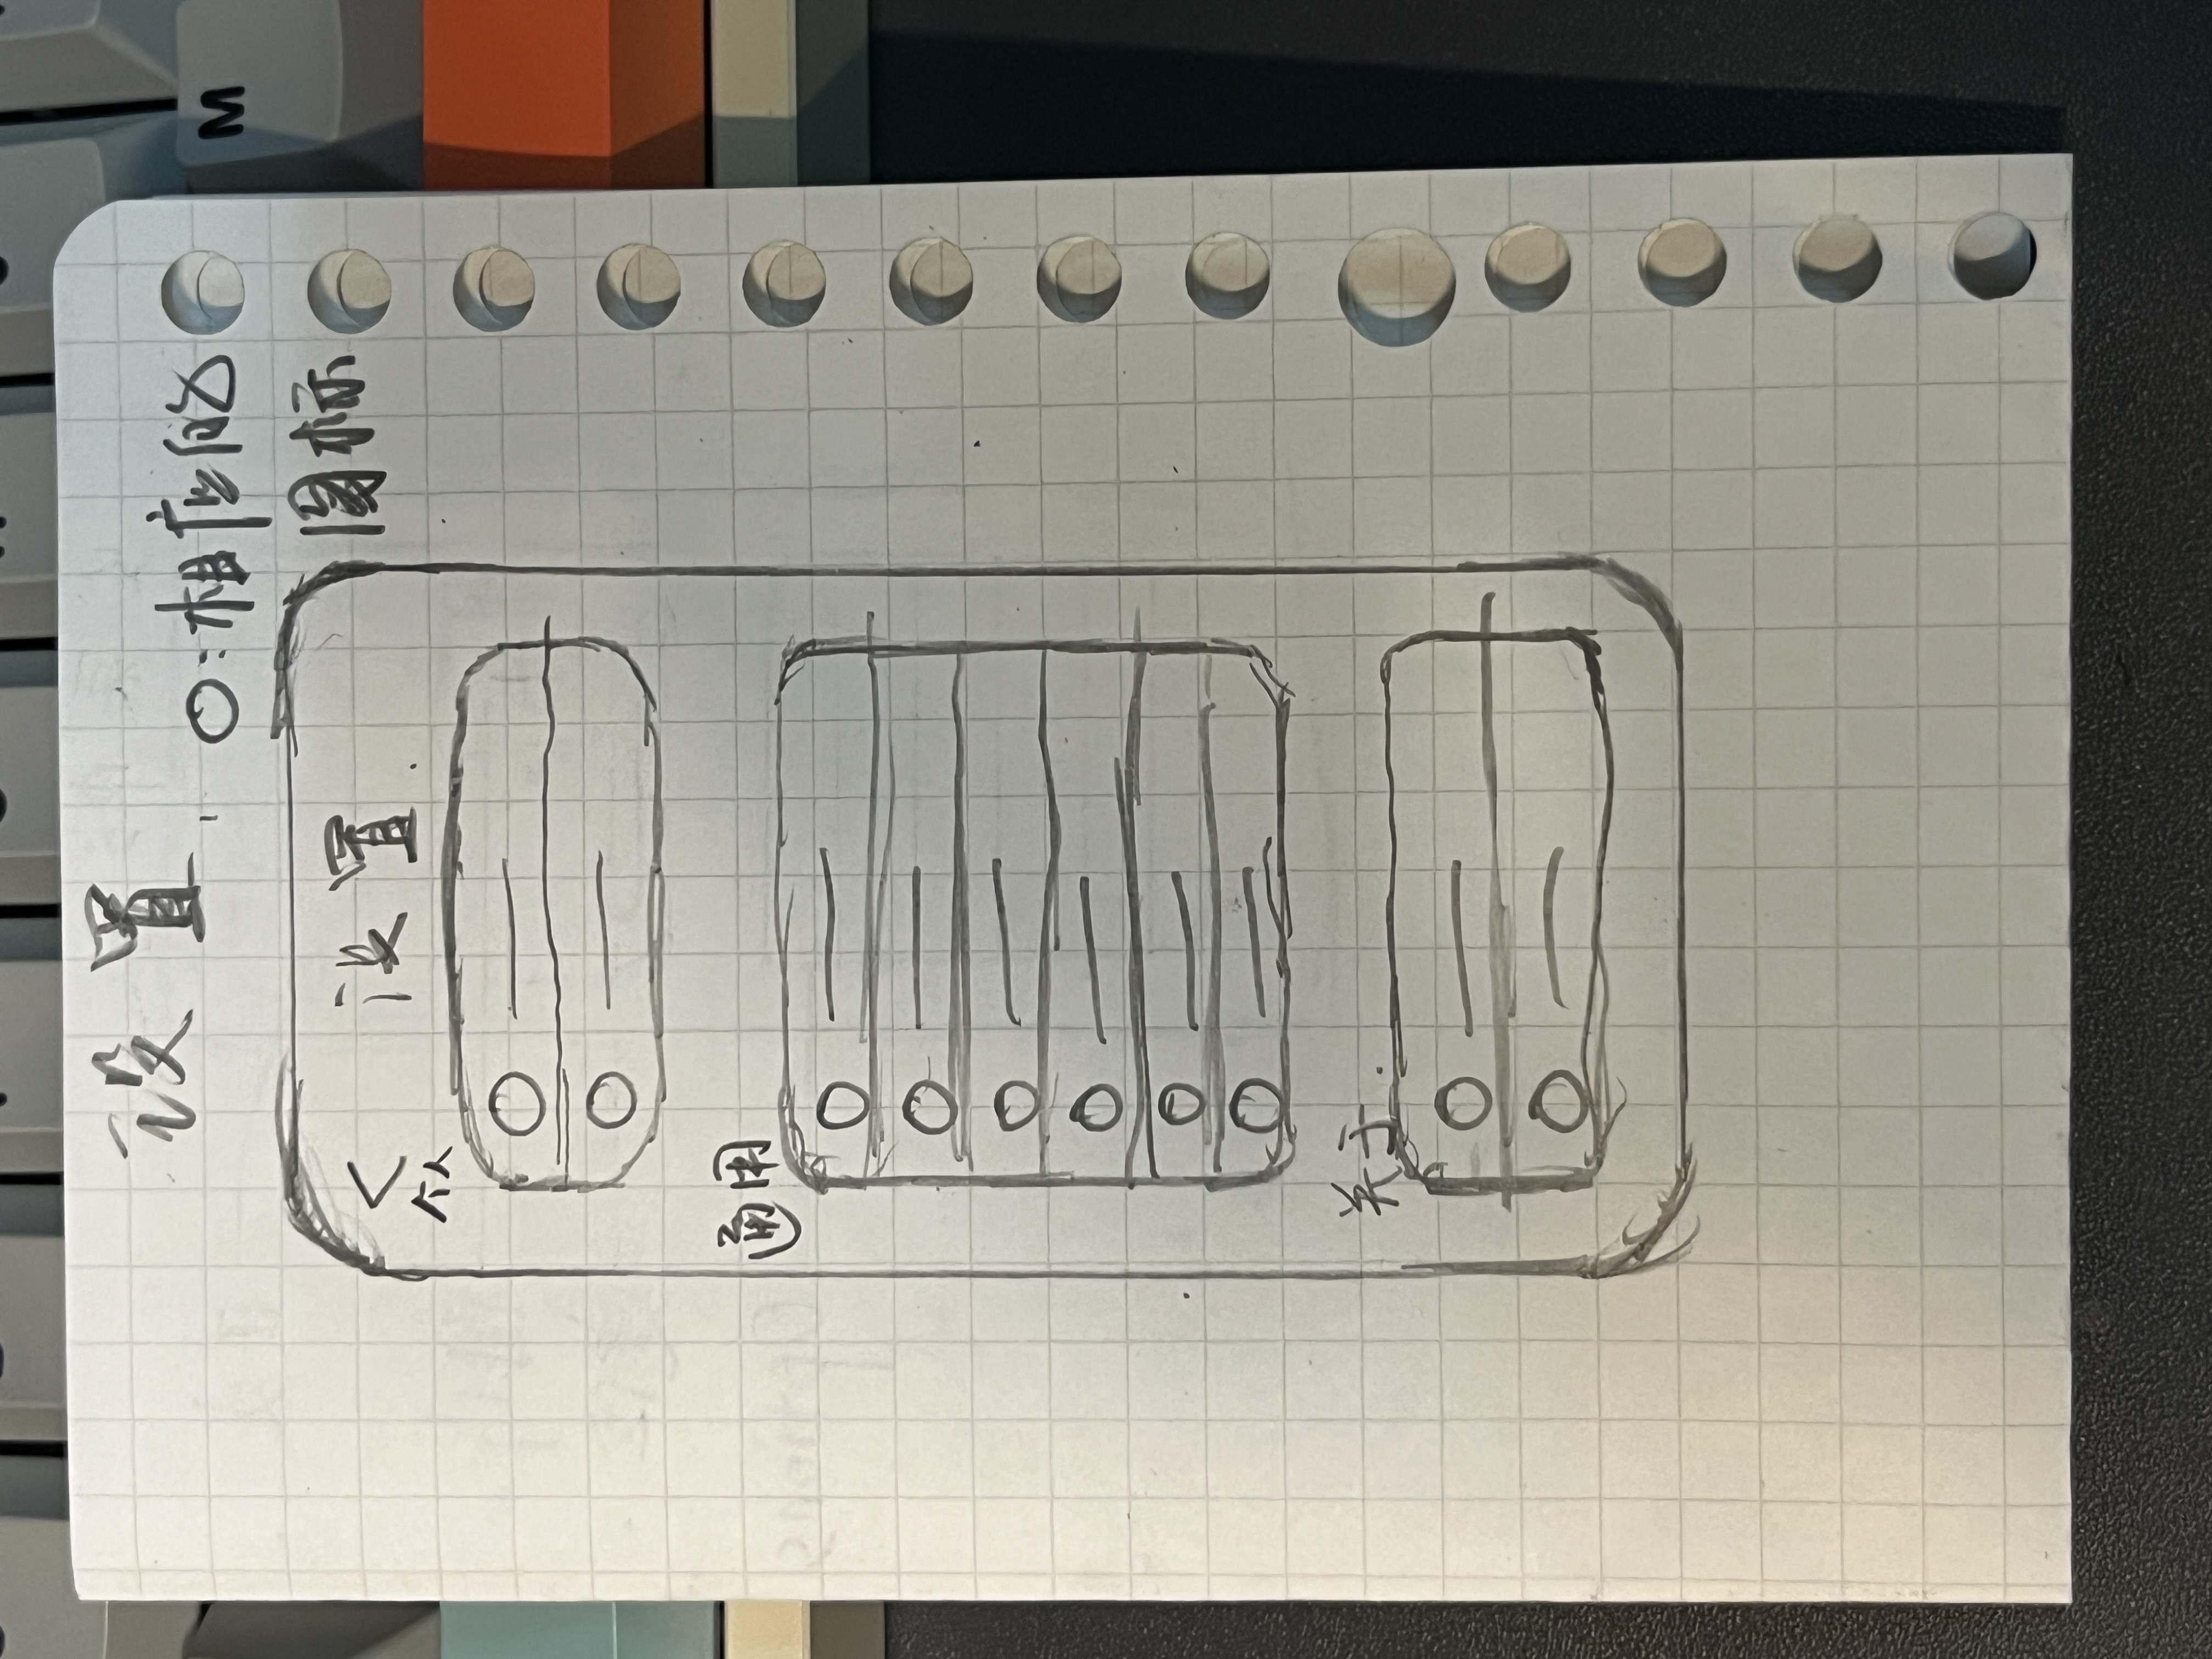 设置
○:相应的
图标
< 设置
个人
通用
关于
M